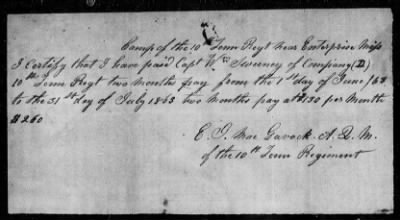 Camp of the 10th Tenn Regt Near Enterprise Miss
I Certify that I have paid Capt Wm Sweeney of Company (D)
10th Tenn Regt two months pay from the 1st day of June /63
to the 31st day of July 1863 two months pay at $130 per Month
$260
E. J. Mac Gavock. A. Q. M.
of the 10th Tenn Regiment